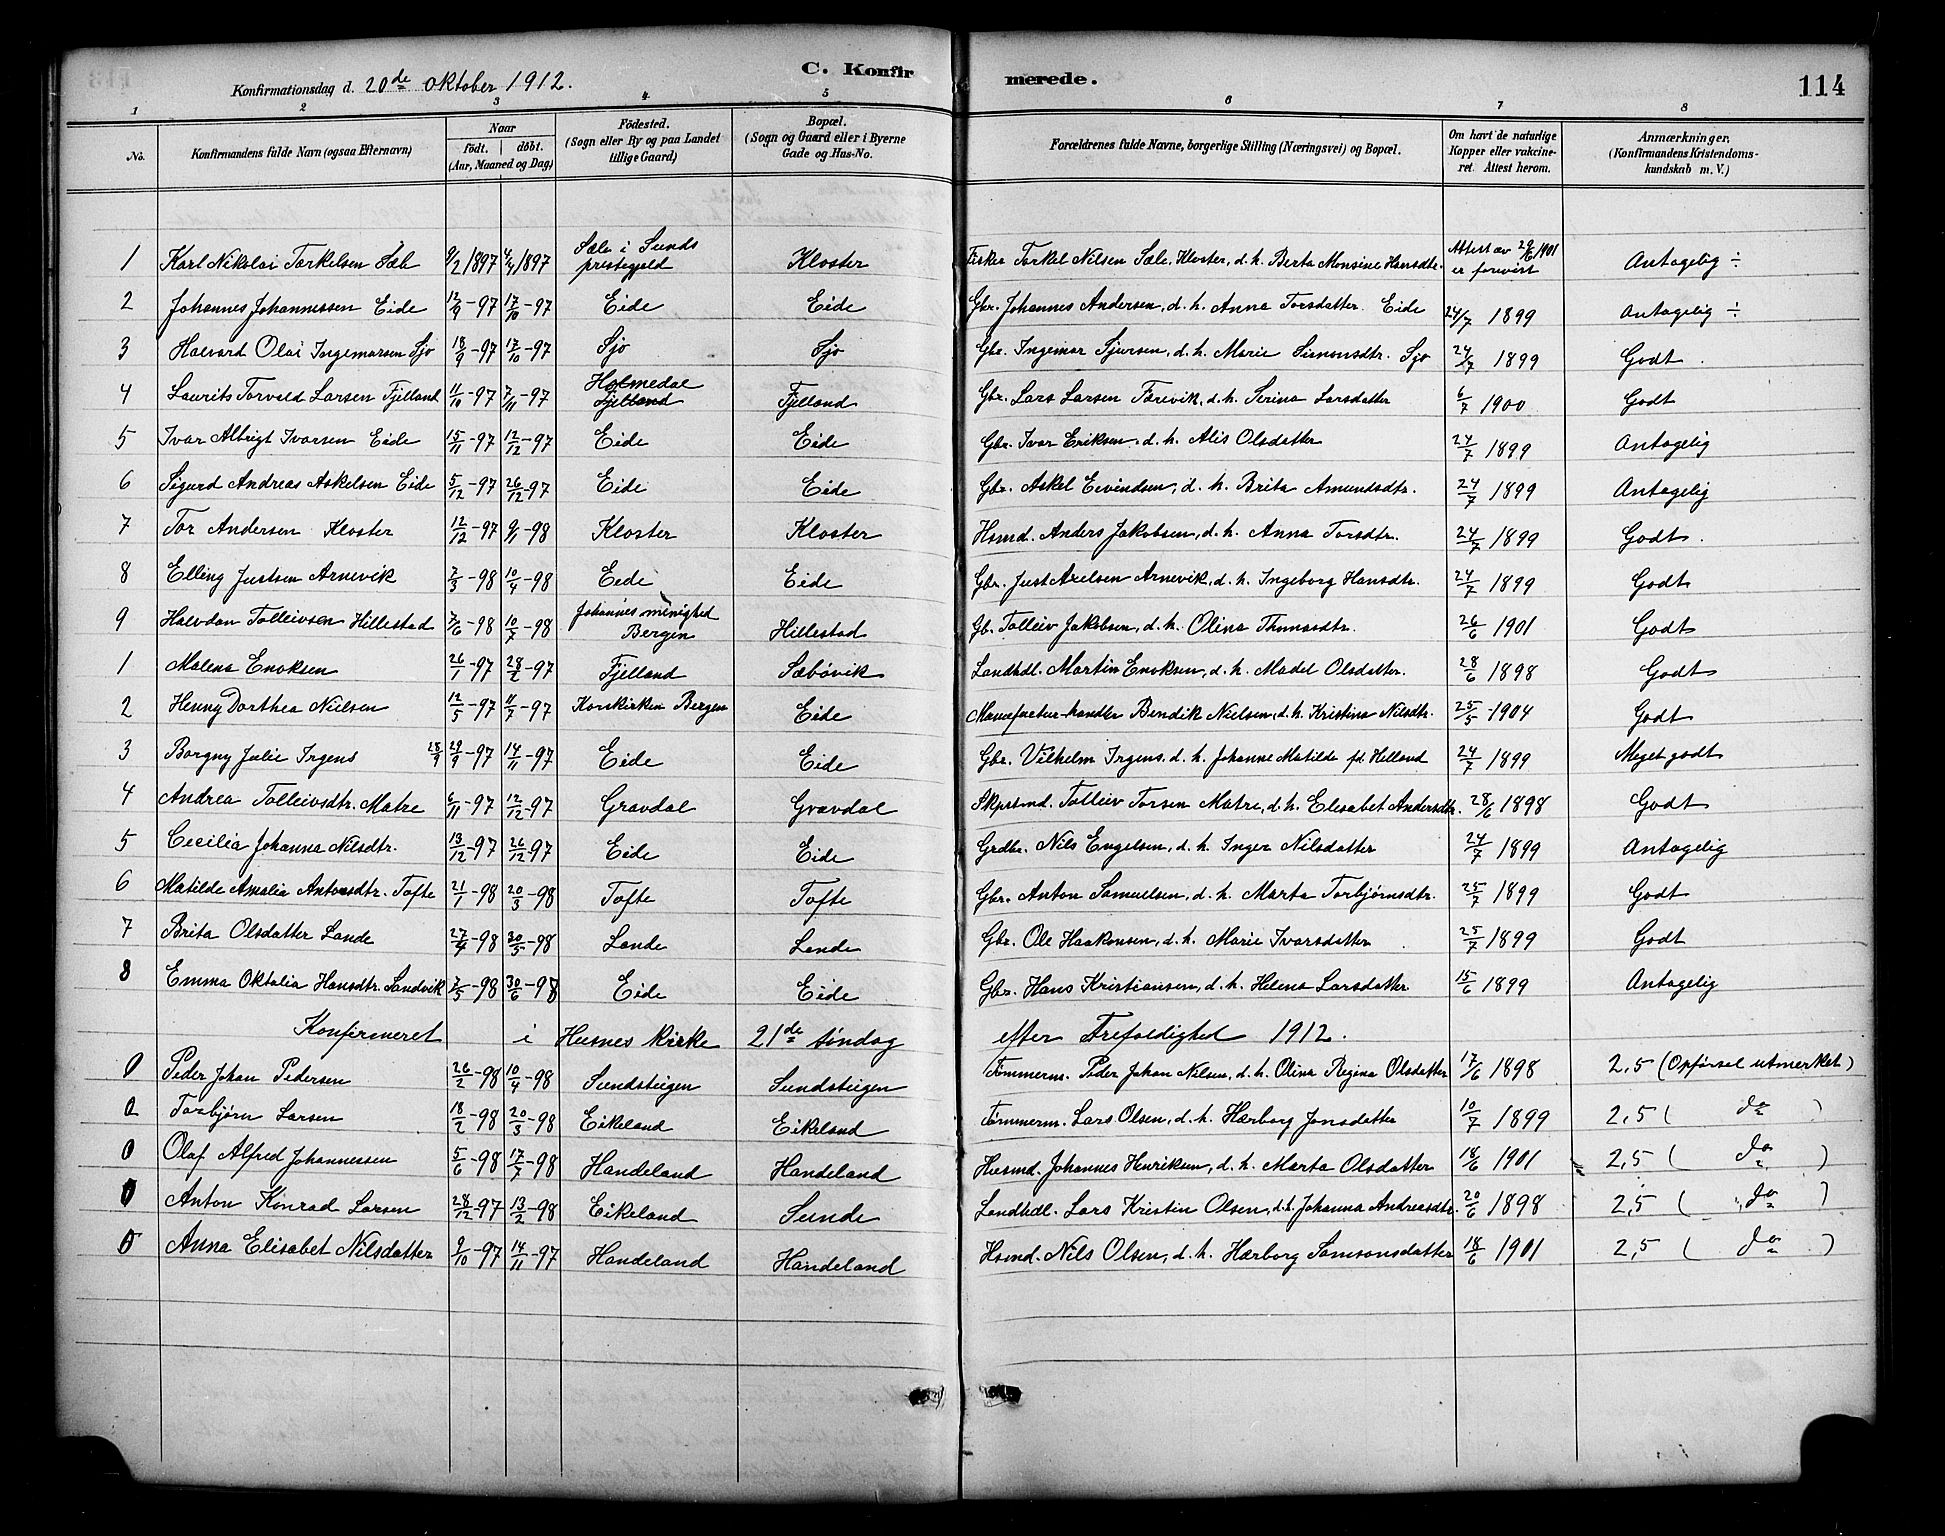 Konfirmationsdag d. 20de oktober 1912. C. Konfirmerede. 114
1 2 3 4 5 6 7 8
No. Konfirmandens fulde Navn (ogsaa Efternavn) Naar født. døbt. (Aar, Maaned og Dag) Fødested. (Sogn eller By og paa Landet tillige Gaard) Bopæl. (Sogn og Gaard eller i Byerne Gade og Hus-No. Forældrenes fulde Navne, borgerlige Stilling (Næringsvei) og Bopæl. Om havt de naturlige Kopper eller vakcineret. Attest herom. Anmærkninger, (Konfirmandens Kristendomskundskab m. V.)
1 Karl Nikolai Torkelsen Sæle 9/2 1897 4/4 1897 Sæle i Sunds prestegjeld Kloster Fisker Torkel Nilsen Sæle, Kloster, d. h. Berta Monsine Hansdtr. Attest av 29/6 1901 er forevist Antagelig ÷
2 Johannes Johannessen Eide 12/9-97 17/10-97 Eide Eide Gbr. Johannes Andersen, d. h. Anna Torsdatter. Eide 24/7 1899 Antagelig ÷
3 Halvard Olai Ingemarsen Sjo 18/9-97 17/10-97 Sjo Sjo Gbr. Ingemar Sjursen, d. h. Marie Simonsdtr. Sjo 24/7 1899 Godt.
4 Laurits Torvald Larsen Fjelland 11/10-97 7/11-97 Holmedal Fjelland Fjelland Gbr. Lars Larsen Færevik, d. h. Serina Larsdatter 6/7 1900 Godt
5 Ivar Albrigt Ivarsen Eide 15/11-97 12/12-97 Eide Eide Gbr. Ivar Eriksen, d. h. Alis Olsdatter 24/7 1899 Antagelig
6 Sigurd Andreas Askelsen Eide 5/12-97 26/12-97 Eide Eide Gbr. Askel Eivindsen, d. h. Brita Amundsdtr. 24/7 1899 Antagelig
7 Tor Andersen Kloster 12/12-97 9/1-98 Kloster Kloster Hsmd. Anders Jakobsen, d. h. Anna Torsdtr. 24/7 1899 Godt.
8 Elling Justsen Arnevik 7/3-98 10/4-98 Eide Eide Gbr. Just Axelsen Arnevik, d. h. Ingeborg Hansdtr. 24/7 1899 Godt
9 Halvdan Tolleivsen Hillestad 7/6-98 10/7-98 Johannes menighed Bergen Hillestad Gb. Tolleiv Jakobsen, d. h. Olina Thomasdtr. 26/6 1901 Godt
1 Malena Enoksen 26/1-97 28/2-97 Fjelland Sæbøvik Landhdl. Martin Enoksen, d. h. Madel Olsdatter. 28/6 1898 Godt
2 Henny Dorthea Nielsen 12/5-97 11/7-97 Korskirken Bergen Eide Manufactur-handler Bendik Nielsen, d. h. Kristina Nilsdtr. 25/5-1904 Godt
3 Borgny Julie Irgens 28/9 29/9-97 14/11-97 Eide Eide Gbr. Vilhelm Irgens, d. h. Johanne Matilde fd. Helland 24/7 1899 Meget godt
4 Andrea Tolleivsdtr. Matre 6/11-97 12/12-97 Gravdal Gravdal Skpstmd. Tolleiv Torsen Matre, d. h. Elisabet Andersdtr. 28/6 1898 Godt
5 Cecilia Johanna Nilsdtr. 13/12-97 26/12-97 Eide Eide Grdbr. Nils Engelsen, d. h. Inger Nilsdatter 24/7 1899 Antagelig
6 Matilde Amalia Antonsdtr. Tofte 21/1-98 20/3-98 Tofte Tofte Gbr. Anton Samuelsen, d. h. Marta Torbjørnsdtr. 25/7 1899 Godt
7 Brita Olsdatter Lande 27/4-98 30/5-98 Lande Lande Gbr. Ole Haakonsen, d. h. Marie Ivarsdatter 25/7 1899 Godt
8 Emma Oktalia Hansdtr. Sandvik 7/5-98 30/6-98 Eide Eide Gbr. Hans Kristiansen, d. h. Helena Larsdatter 15/6 1899 Antagelig
Konfirmeret i Husnes kirke 21de søndag efter Trefoldighed 1912.
0 Peder Johan Pedersen 26/2-98 10/4-98 Sundsteigen Sundsteigen Tømmerm. Peder Johan Nilsen, d. h. Olina Regina Olsdatter 17/6 1898 2,5 (Opførsel utmerket)
0 Torbjørn Larsen 18/2-98 20/3-98 Eikeland Eikeland Tømmerm. Lars Olsen, d. h. Hærborg Jonsdatter 10/7 1899 2,5 ( do )
0 Olaf Alfred Johannessen 5/6-98 17/7-98 Handeland Handeland Husmd. Johannes Henriksen, d. h. Marta Olsdatter 18/6 1901 2,5 ( do )
0 Anton Konrad Larsen 28/12-97 13/2-98 Eikeland Sunde Landhdl. Lars Kristin Olsen, d. h. Johanna Andreasdtr. 20/6 1898 2,5 ( do )
0 Anna Elisabet Nilsdatter 9/10-97 14/11-97 Handeland Handeland Hsmd. Nils Olsen, d. h. Hærborg Samsonsdatter 18/6 1901 2,5 ( do )